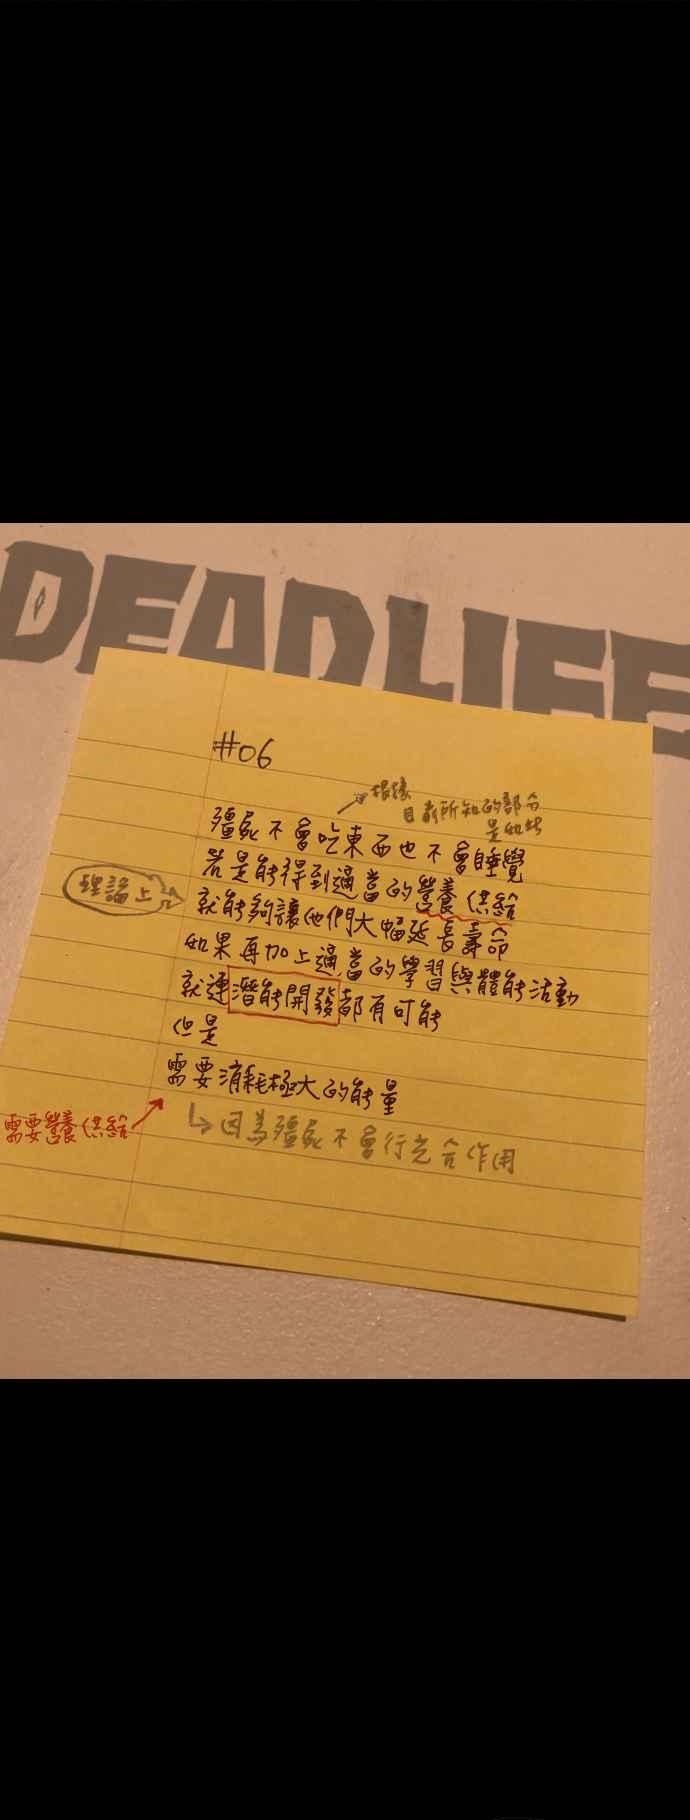 DEADLIFE
#06
根據
目前所知的部分
是如此
殭屍不會吃東西也不會睡覺
若是能得到適當的營養供給
理論上
就能夠讓他們大幅延長壽命
如果再加上適當的學習與體能活動
就連潛能開發都有可能
但是
需要消耗極大的能量
需要營養供給
因為殭屍不會行光合作用